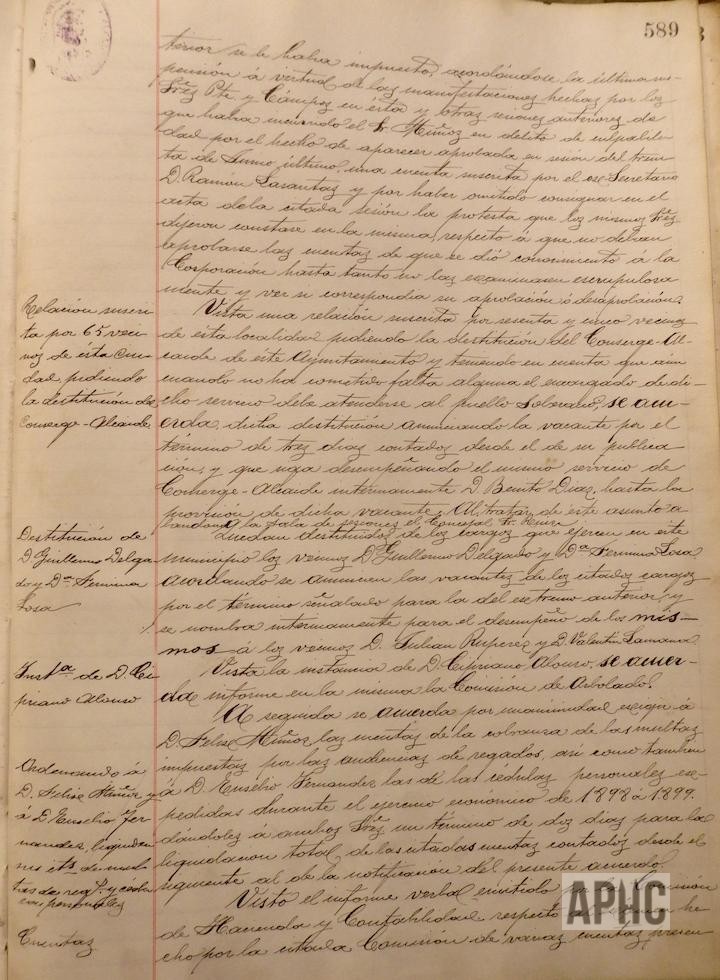 589
terior se le habia impuesto, acordándose la última sus-
pensión á virtud de las manifestaciones hechas por los
Sres. Pte. y Cámpos en ésta y otras sesiones anteriores de
que habia incurrido el Sr. Muñoz en delito de culpabili-
dad por el hecho de aparecer aprobada en sesión del trein-
ta de Junio último, una cuenta suscrita por el ex-Secretario
D. Ramón Sarantas y por haber omitido consignar en el
acta de la citada sesión la protesta que los mismos Sres.
dijeron constase en la misma, respecto á que no debian
aprobarse las cuentas de que se dió conocimiento á la
Corporación hasta tanto no las examinasen escrupulosa
mente y ver si correspondia su aprobación ó desaprobación.
Relación suscri-
ta por 65 veci-
nos de ésta Ciu-
dad pidiendo
la destitución del
Conserge-Alcaide
Vista una relación suscrita por sesenta y cinco vecinos
de esta localidad pidiendo la destitución del Conserge-Al-
caide de este Ayuntamiento y teniendo en cuenta que aún
cuando no ha cometido falta alguna el encargado de di-
cho servicio debe atenderse al pueblo Soberano, se acu-
erda dicha destitución anunciando la vacante por el
término de tres dias contados desde el de su publica
ción, y que siga desempeñando el mismo servicio de
Conserge-Alcaide interinamente D. Benito Diaz, hasta la
provisión de dicha vacante. Al tratar de este asunto a
bandonó la Sala de sesiones el Concejal Sr.
Destitución de
D Guillermo Delga-
do y Dª Fermina
Sosa
Quedan destituidos de los cargos que ejercen en este
municipio los vecinos D. Guillermo Delgado y Dª Fermina Sosa
acordando se anuncien las vacantes de los citados cargos
por el término señalado para la del estremo anterior, y
se nombra interinamente para el desempeño de los mis-
mos á los vecinos D. Julian Ruperez y D. Valentin
Instª de D. Ci
priano Alonso
Vista la instancia de D. Cipriano Alonso, se acuer-
da informe en la misma la Comisión de Arbolado.
Ordenando á
D. Felise Muñoz y
á D Eusebio Fer-
nandez, liquiden
las de mul-
tas de reg y cedu
las personales
A seguida se acuerda por unanimidad exigir á
D. Felise Muñoz las cuentas de la cobranza de las multas
impuestas por las audiencias de regados, así como tambien
á D. Eusebio Fernandez las de las cédulas personales ex-
pedidas durante el ejercicio económico de 1898 á 1899.
dándoles a ambos Sres. un término de dos dias para la
liquidación total de las citadas cuentas contados desde el
siguiente al de la notificación del presente acuerdo.
Cuentas
Visto el informe verbal emitido por la Comisión
de Hacienda y Contabilidad respecto he-
cho por la citada Comisión de varias cuentas presen
APHC